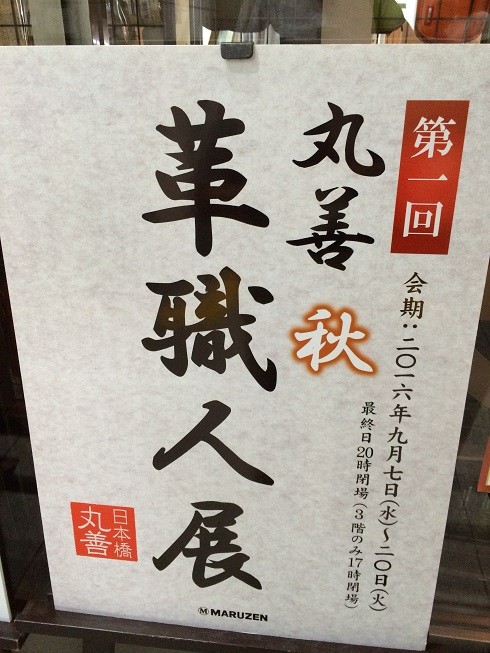 第一回
会期:二〇一六年九月七日(水)〜二〇日(火)
最終日20時閉場(3階のみ17時閉場)
丸善 秋
革職人展
日本橋
丸善
M MARUZEN